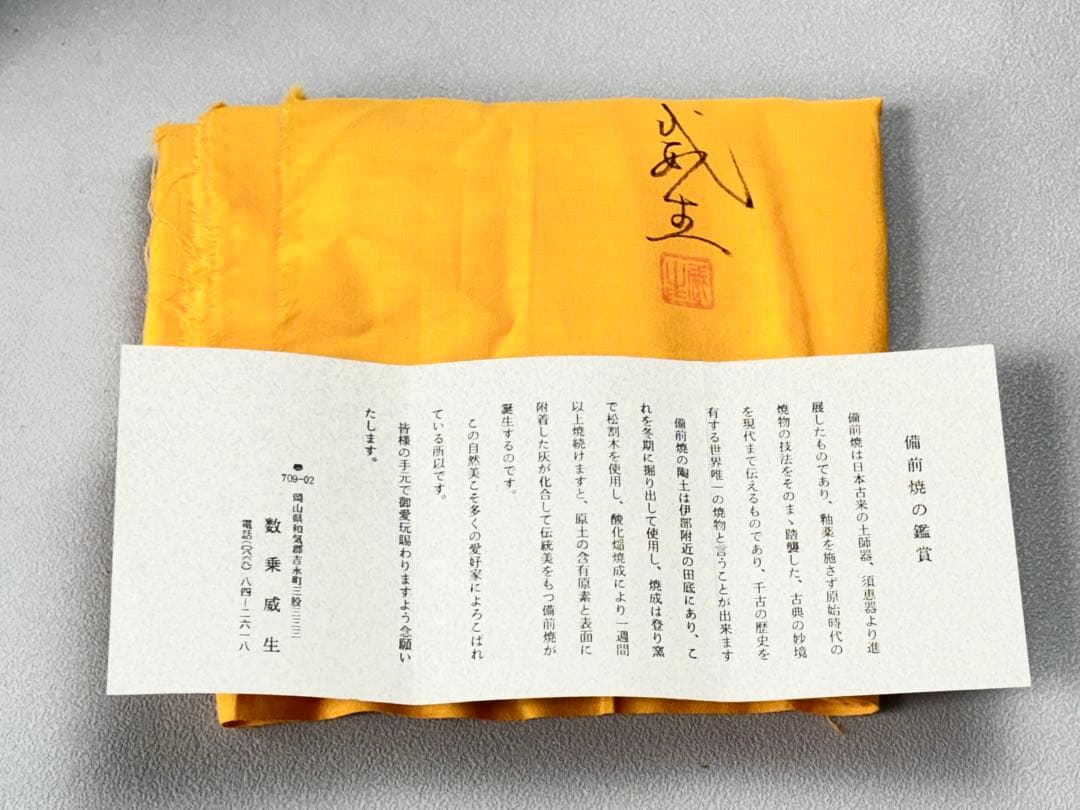 威生
備前焼の鑑賞
備前焼は日本古来の土師器、須恵器より進
展したものであり、釉薬を施さず原始時代の
焼物の技法をそのまゝ踏襲した、古典の妙境
を現代まで伝えるものであり、千古の歴史を
有する世界唯一の焼物と言うことが出来ます
備前焼の陶土は伊部附近の田底にあり、こ
れを冬期に掘り出して使用し、焼成は登り窯
で松割木を使用し、酸化焔焼成により一週間
以上焼続けますと、原土の含有原素と表面に
附着した灰が化合して伝統美をもつ備前焼が
誕生するのです。
この自然美こそ多くの愛好家によろこばれ
ている所以です。
皆様の手元で御愛玩賜わりますよう念願い
たします。
709-02
岡山県和気郡吉永町三股三三三
数乗威生
電話(〇八六九)八四-二六一八